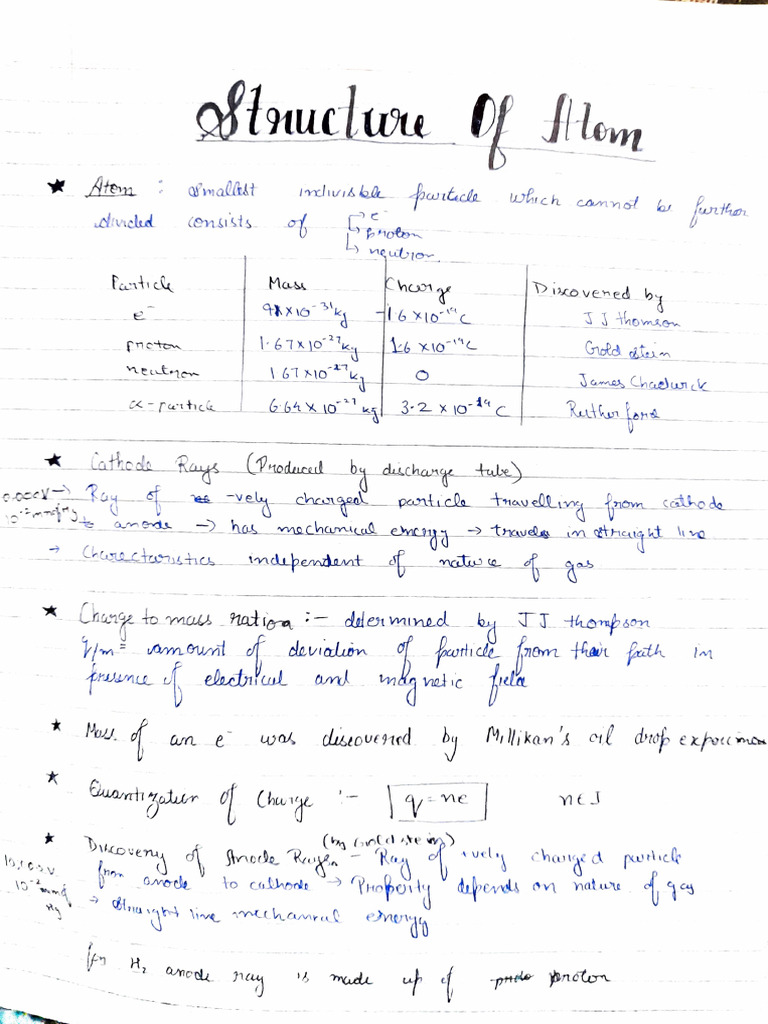 Structure Of Atom
★ Atom : Smallest indivisible particle which cannot be further
divided consists of → e⁻
→ proton
→ neutron.
Particle Mass Charge Discovered by
e⁻ 9.1×10⁻³¹kg -1.6×10⁻¹⁹C J J thomson
proton 1.67×10⁻²⁷kg 1.6×10⁻¹⁹C Gold stein
neutron 1.67×10⁻²⁷kg 0 James Chadwick
α-particle 6.64×10⁻²⁷kg 3.2×10⁻¹⁹C Rutherford
★ Cathode Rays (Produced by discharge tube)
→ Ray of -vely charged particle travelling from cathode
10⁻²mm of Hg to anode → has mechanical energy → travels in straight line
→ Charectaristics independent of nature of gas
★ Charge to mass ration :- determined by J J thompson
q/m = amount of deviation of particle from their path in
presence of electrical and magnetic field
★ Mass of an e⁻ was discovered by Millikan's oil drop exporimen
★ Quantization of Charge :- q=ne n∈I
(by Goldstein)
★ Discovery of Anode Rays - Ray of +vely charged particle
10,000v from anode to cathode → Property depends on nature of gas
10⁻²mm of Hg → Straight line mechanical energy
for H₂ anode ray is made up of proton